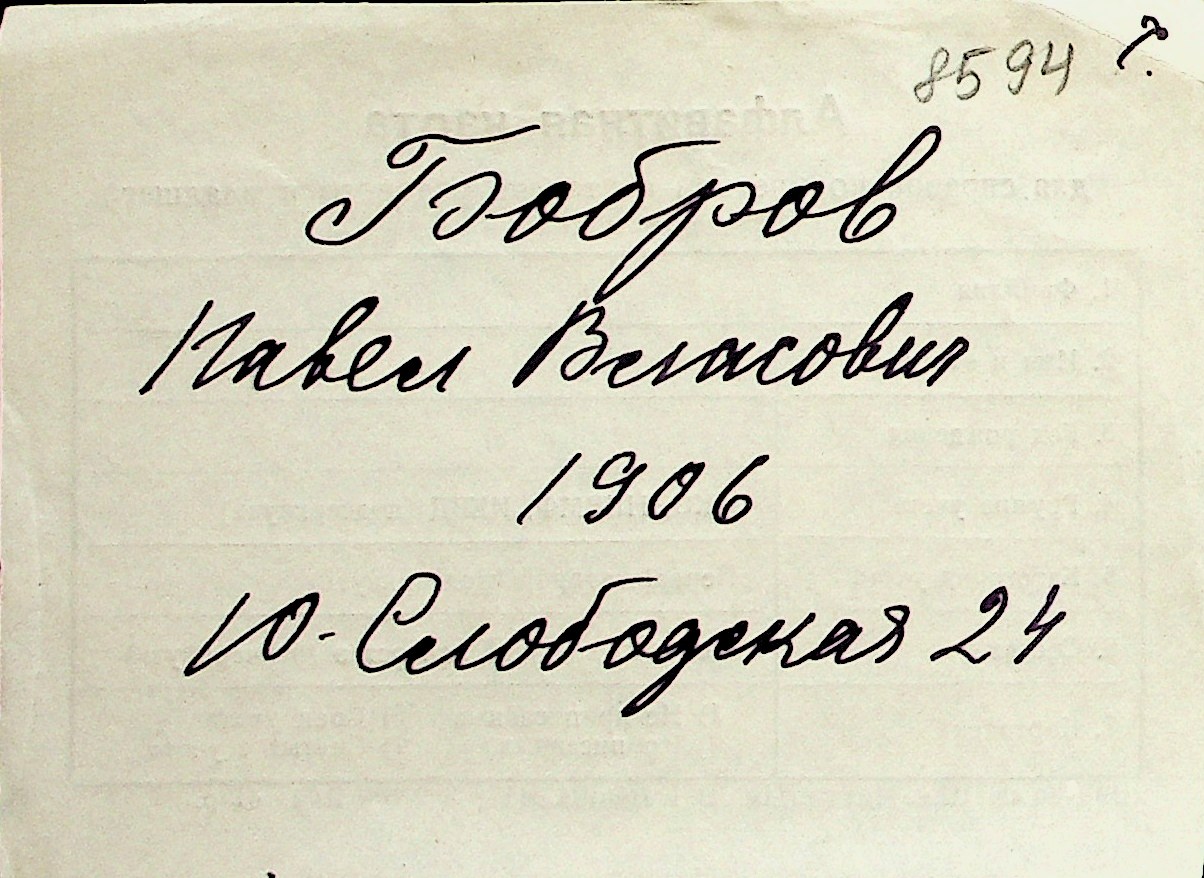 8594 г.
Бобров
Павел Власович
1906
Ю-Слободская 24